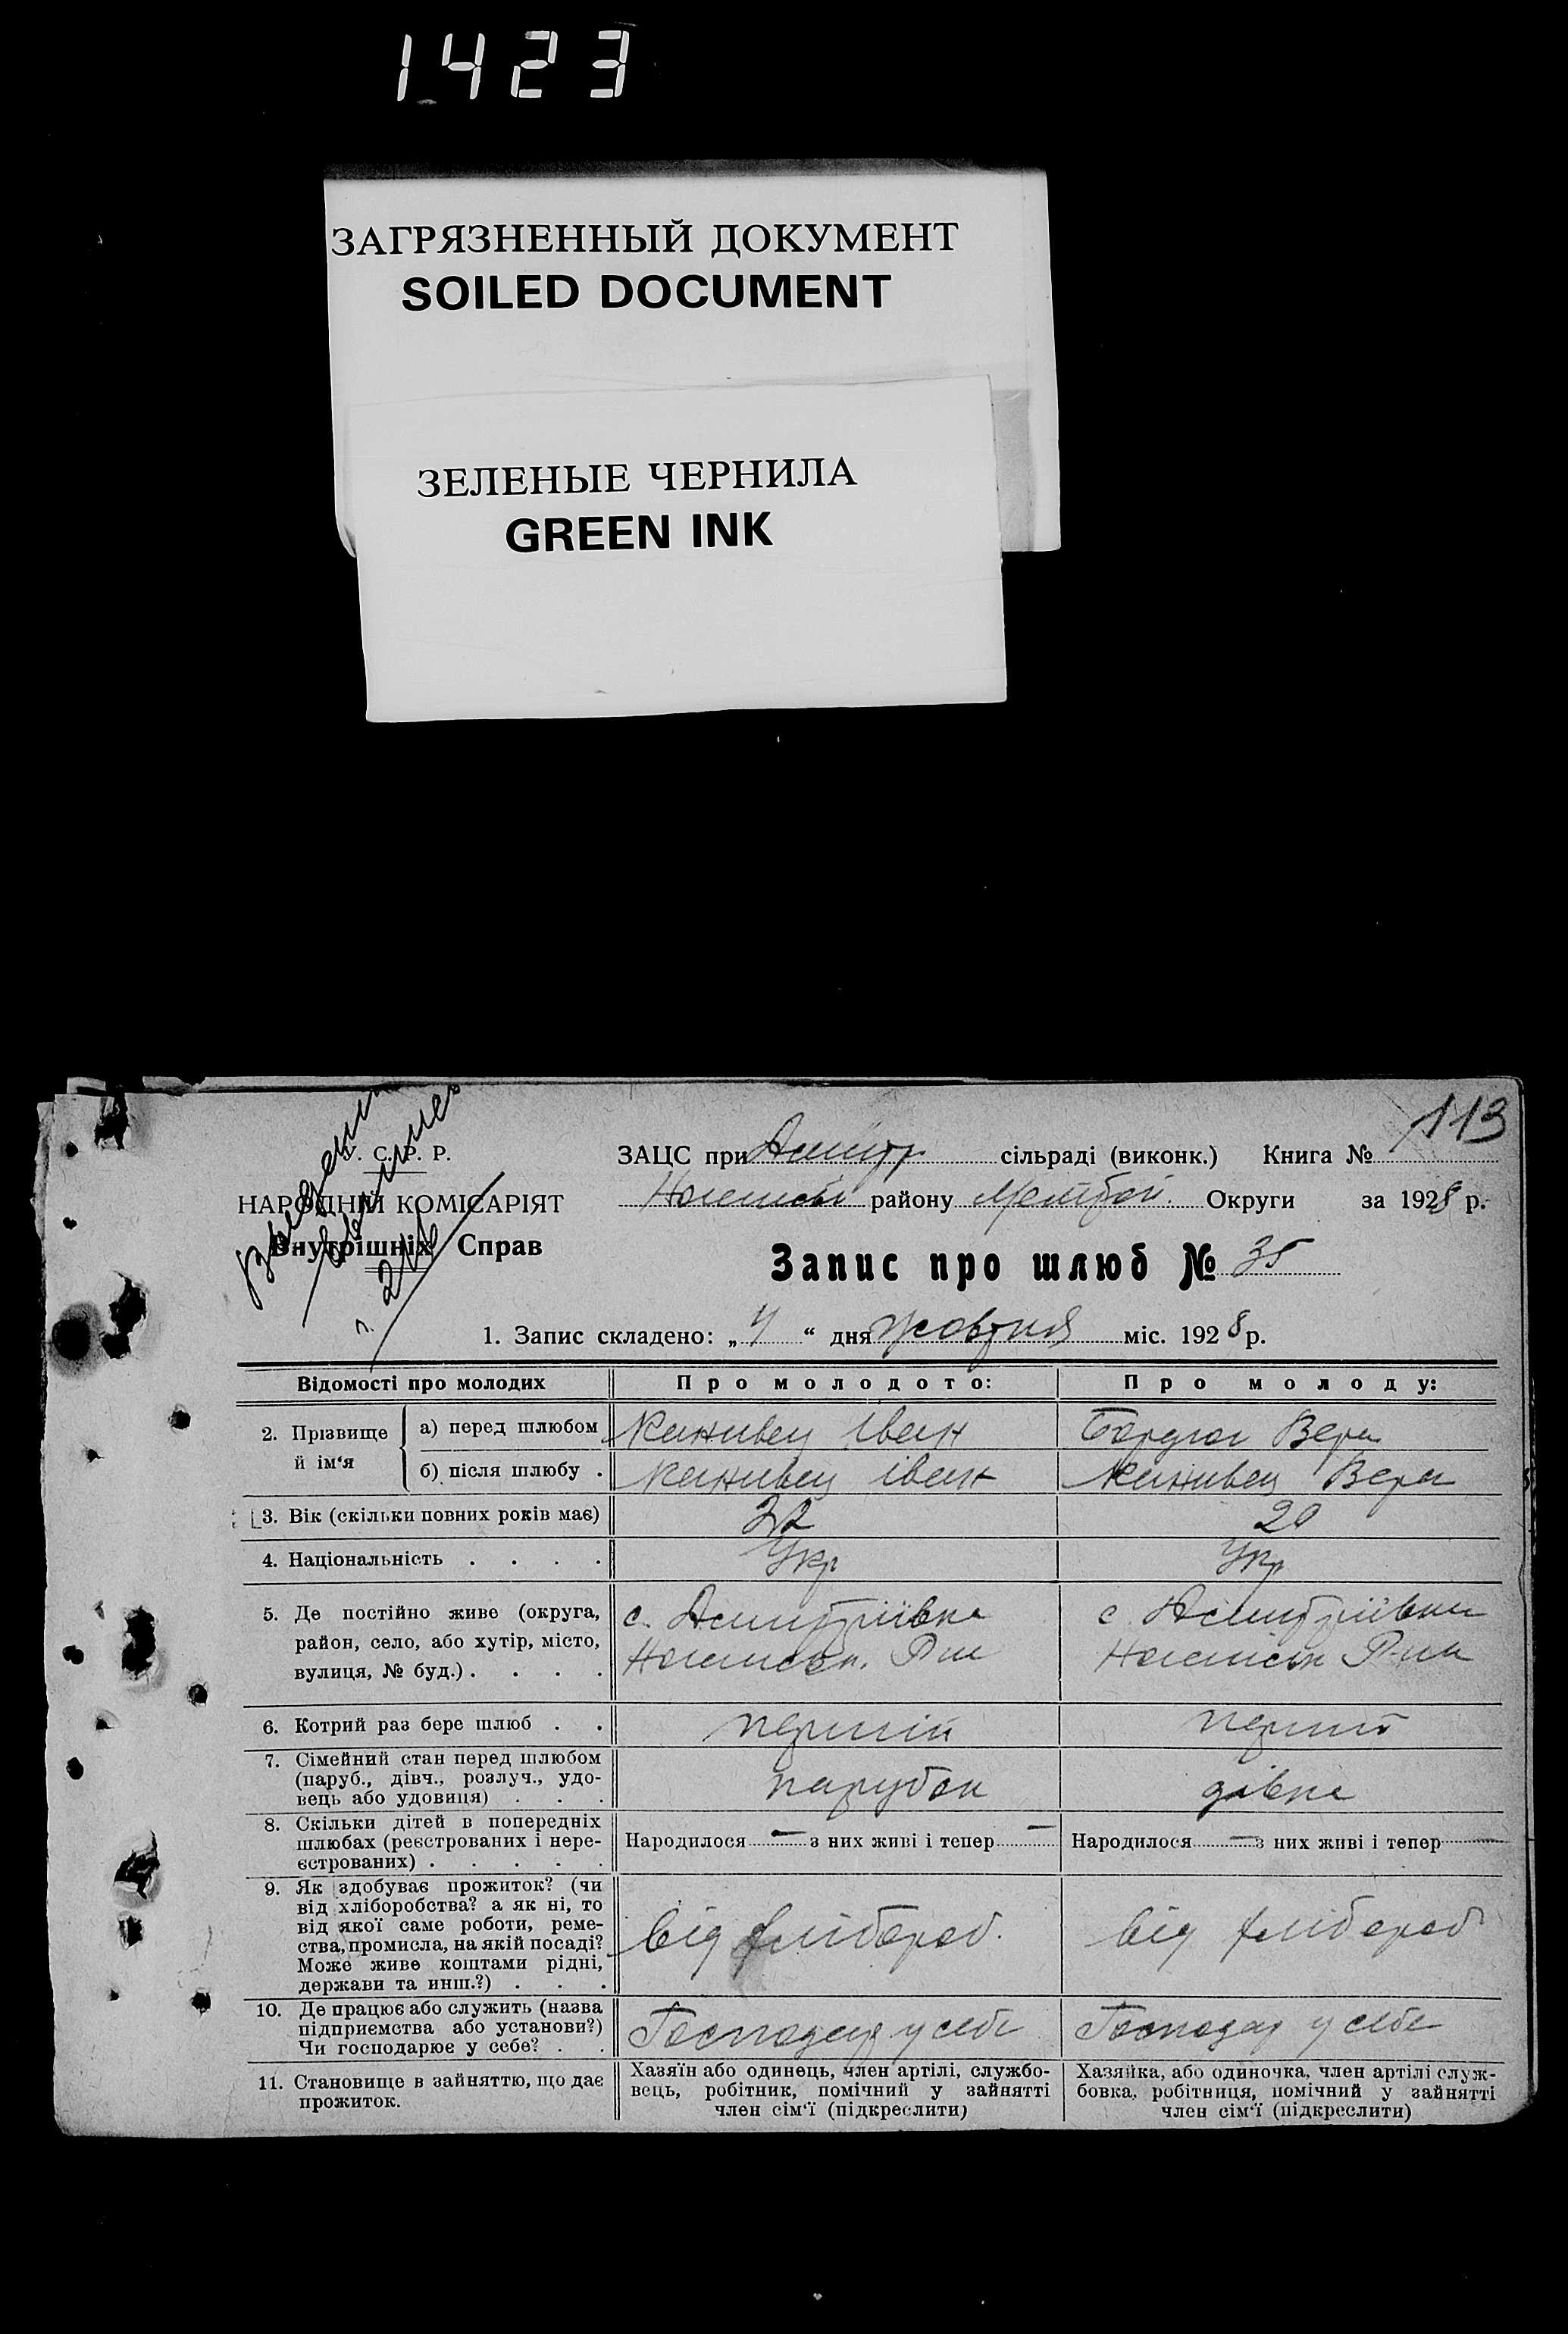 1423
ЗАГРЯЗНЕННЫЙ ДОКУМЕНТ
SOILED DOCUMENT
ЗЕЛЕНЫЕ ЧЕРНИЛА
GREEN INK
113
У. С. Р. Р.
НАРОДНІЙ КОМІСАРІЯТ
Внутрішніх Справ
ЗАЦС при сільраді (виконк.) Книга №
району Округи за 1928 р.
Запис про шлюб № 35
1. Запис складено: „4“ дня жовтня міс. 1928 р.
Відомості про молодих Про молодого: Про молоду:
2. Прізвище й ім‘я
а) перед шлюбом Канивец Іван Вера
б) після шлюбу . Канивец Іван Канивец Вера
3. Вік (скільки повних років має) 22 20
4. Національність . . . . Укр Укр
5. Де постійно живе (округа,
район, село, або хутір, місто,
вулиця, № буд.) . . . .
с. Дмитріївка
с Дмитріївка
6. Котрий раз бере шлюб . . перший
7. Сімейний стан перед шлюбом
(паруб., дівч., розлуч., удо-
вець або удовиця) . . .
парубок дівка
8. Скільки дітей в попередніх
шлюбах (реєстрованих і нере-
єстрованих) . . . . .
Народилося — з них живі і тепер — Народилося — з них живі і тепер —
9. Як здобуває прожиток? (чи
від хліборобства? а як ні, то
від якої саме роботи, реме-
ства, промисла, на якій посаді?
Може живе коштами рідні,
держави та инш.?) . . .
від хлібороб. від хлібороб
10. Де працює або служить (назва
підприємства або установи?)
Чи господарює у себе? . .
Господар у себе Господар у себе
11. Становище в зайняттю, що дає
прожиток.
Хазяїн або одинець, член артілі, службо-
вець, робітник, помічний у зайнятті
член сім‘ї (підкреслити)
Хазяйка, або одиночка, член артілі служ-
бовка, робітниця, помічний у зайнятті
член сім‘ї (підкреслити)